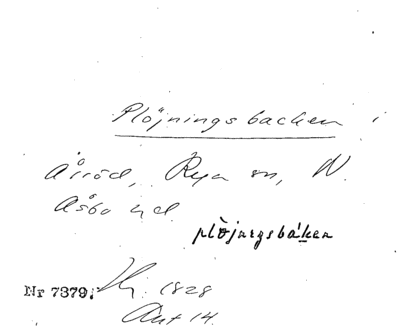 Plöjningsbacken i
Årröd, Rya sn, N.
Åsbo hd
plöjnıgsbáken
Nr 7379. 1828
Ant 14.